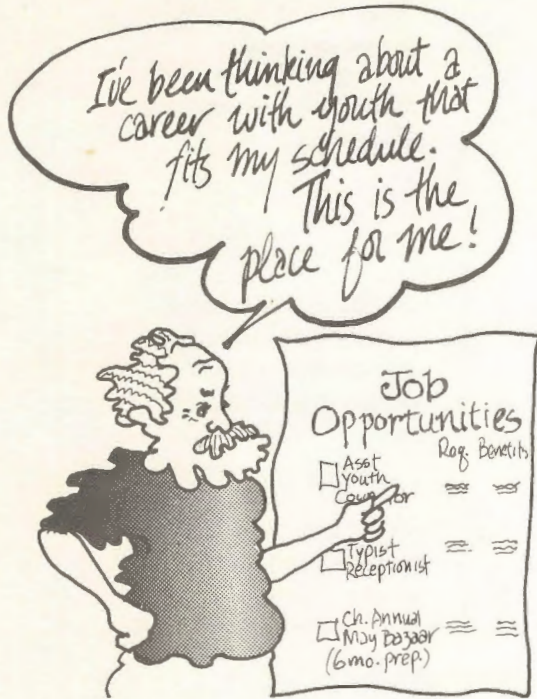 I've been thinking about a
career with youth that
fits my schedule.
This is the
place for me!
Job
Opportunities
Req. Benefits
Asst
Youth
Typist
Receptionist
Ch. Annual
May Bazaar
(6 mo. prep.)